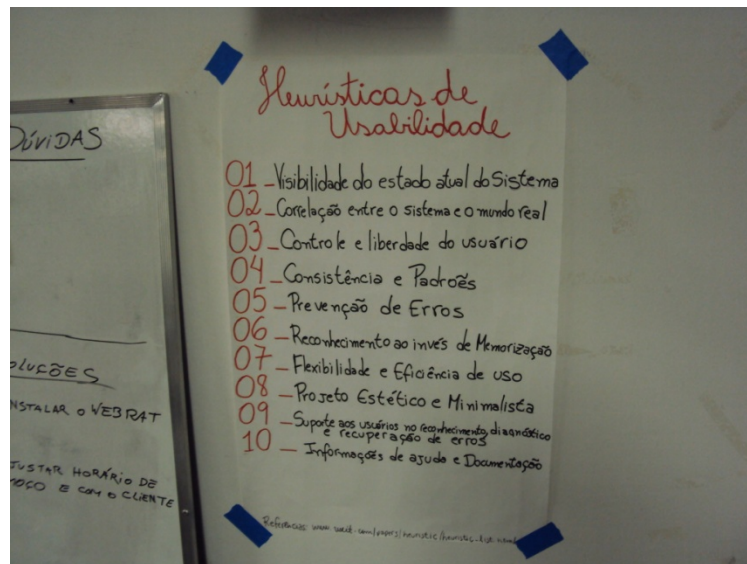 DÚVIDAS
OLUÇÕES
NSTALAR O WEBRAT
JUSTAR HORÁRIO DE
MOÇO E COM O CLIENTE
Heurísticas de
Usabilidade
01 - Visibilidade do estado atual do Sistema
02 - Correlação entre o sistema e o mundo real
03 - Controle e liberdade do usuário
04 - Consistência e Padrões
05 - Prevenção de Erros
06 - Reconhecimento ao invés de Memorização
07 - Flexibilidade e Eficiência de uso
08 - Projeto Estético e Minimalista
09 - Suporte aos usuários no reconhecimento, diagnóstico
e recuperação de erros
10 - Informações de ajuda e Documentação
Referências: www.